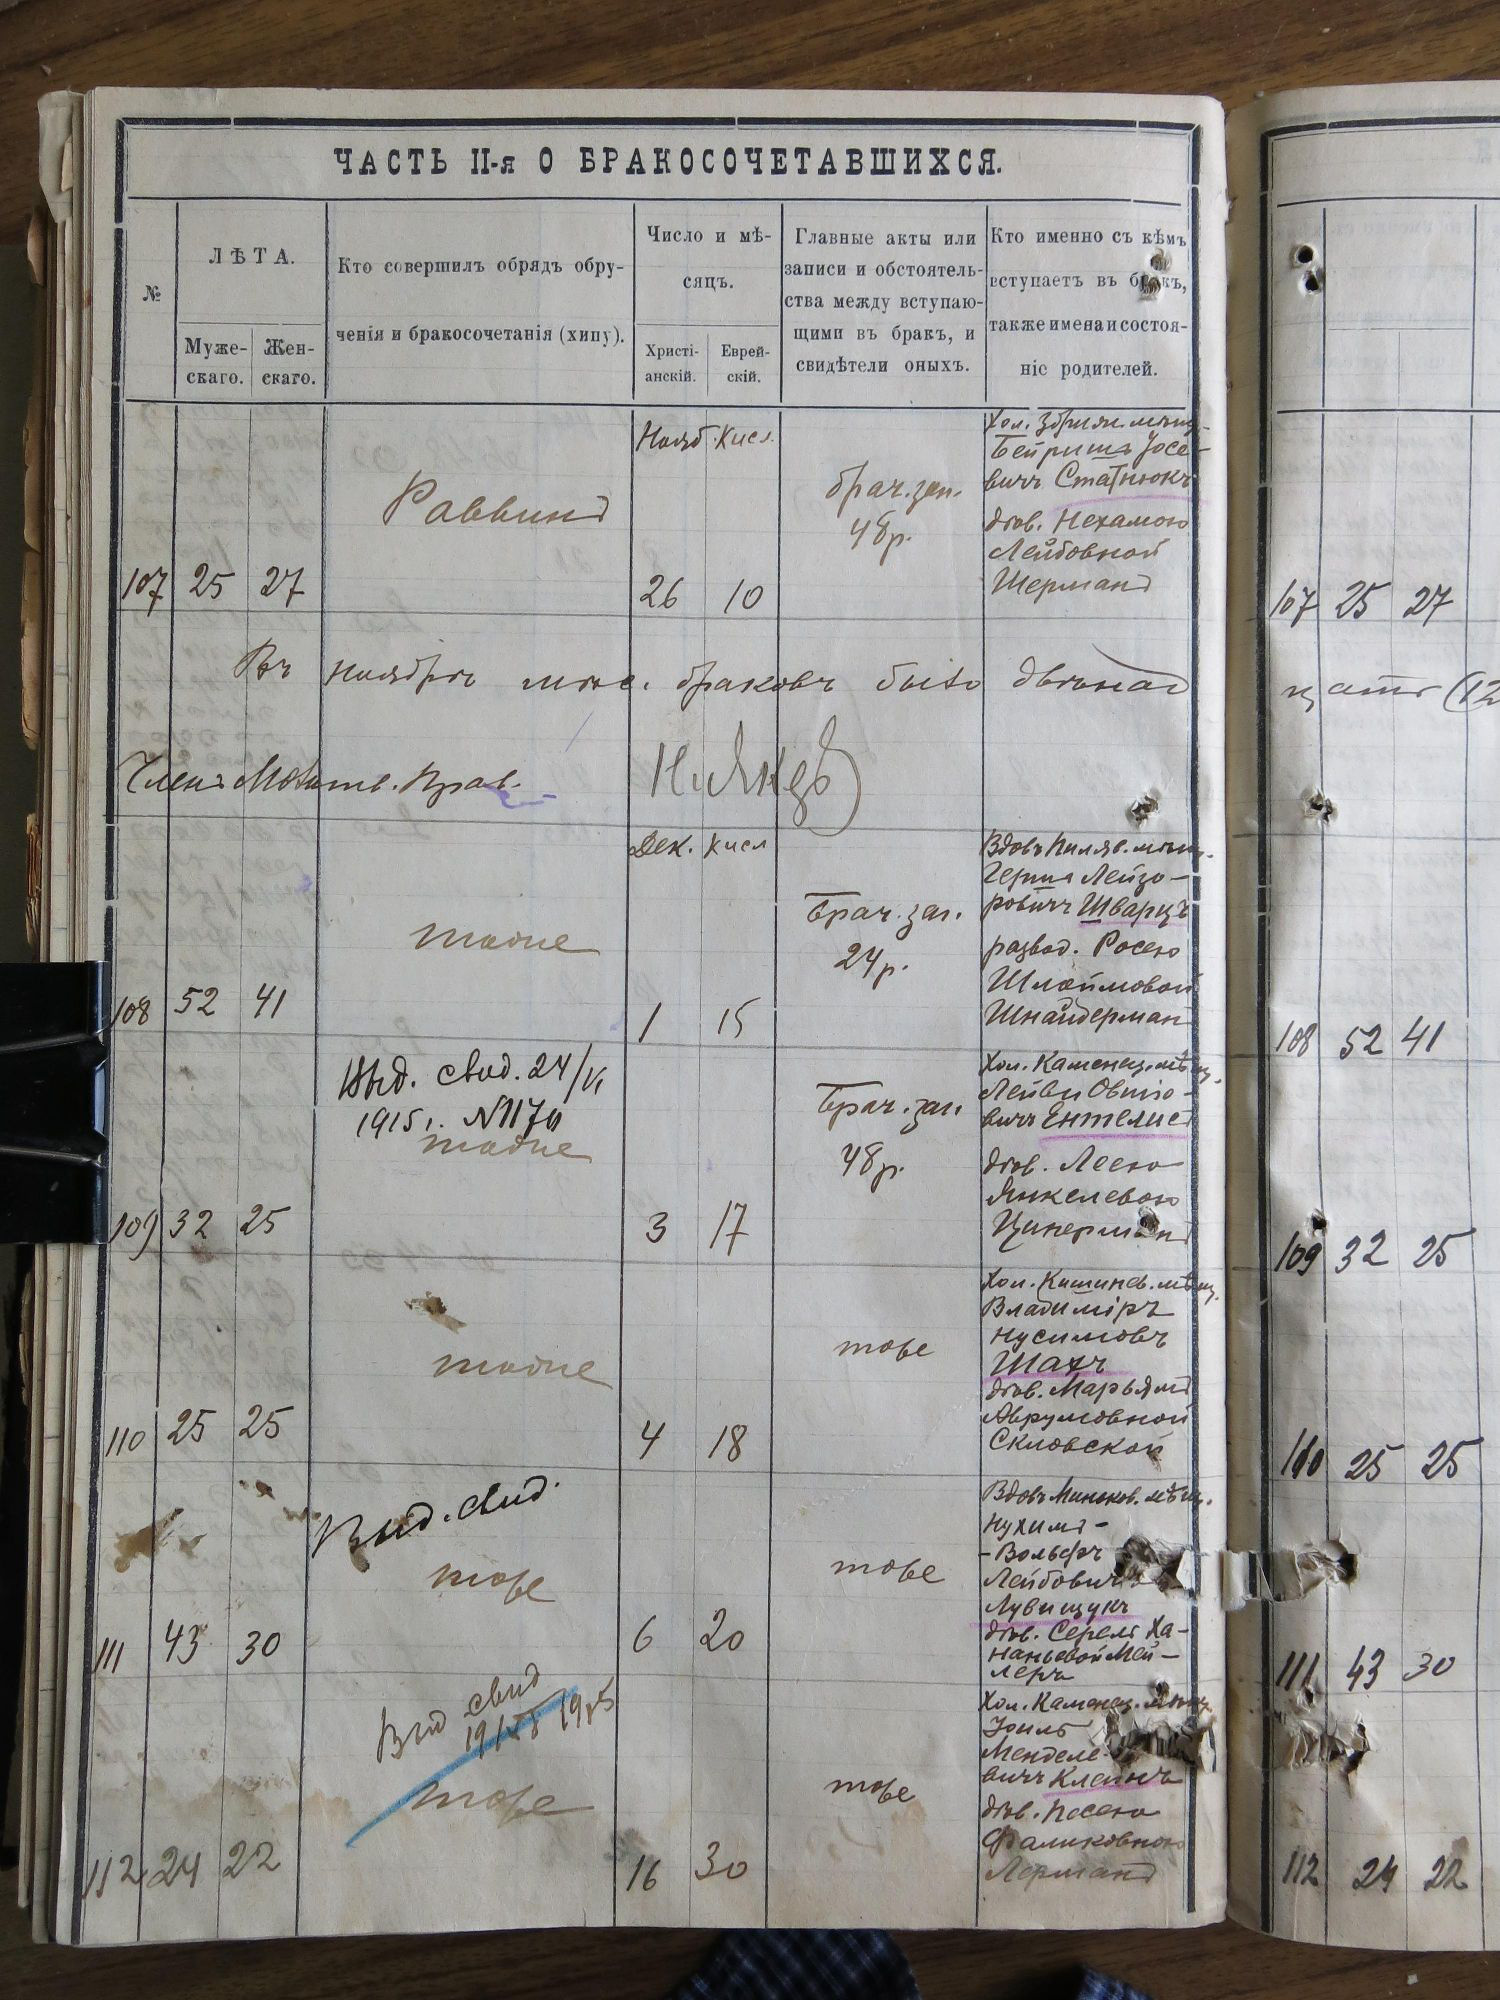 ЧАСТЬ II-я О БРАКОСОЧЕТАВШИХСЯ.
№
ЛѢТА.
Муже-
скаго.
Жен-
скаго.
Кто совершилъ обрядъ обру-
ченія и бракосочетанія (хипу).
Число и мѣ-
сяцъ.
Христі-
анскій.
Еврей-
скій.
Главные акты или
записи и обстоятель-
ства между вступаю-
щими въ бракъ, и
свидѣтели оныхъ.
Кто именно съ кѣмъ
вступаетъ въ бракъ,
также имена и состоя-
ніе родителей.
107 25 27
Раввинъ
Нояб. Кисл.
26 10
брач. зап.
48 р.
Хол. мѣщ.
Бейришъ Іосе-
вичъ Статнюкъ
дѣв. Нехамою
Лейбовной
Шерманъ
Въ ноябрѣ мѣс. браковъ было двѣнад
Членъ Молитв. Прав.
108 52 41
тоже
Дек. Кисл
1 15
Брач. зап.
24 р.
Вдовъ Пиляв. мѣщ.
Гершъ Лейзо-
ровичъ Шварцъ
развод. Росею
Шлоймовой
Шнайдерман
109 32 25
Выд. свид. 24/VI
1915 г. №
тоже
3 17
Брач. зап.
48 р.
Хол. Каменец. мѣщ.
Лейви Овшіо-
вичъ Ентелисъ
дѣв. Леею
Янкелевою
Цинерманъ
110 25 25
тоже
4 18
тоже
Хол. Кишинев. мѣщ.
Владиміръ
Нусимовъ
Шахъ
дѣв. Марьямъ
Аврумовной
Скловской
111 43 30
Выд. свид.
тоже
6 20
тоже
Вдовъ Миньков. мѣщ.
Нухимъ-
-Вольфъ
Лейбовичъ
Лувищукъ
дѣв. Серелъ Ха-
наньевой Мей-
леръ
112 24 22
Выд свид
тоже
16 30
тоже
Хол. Каменец. мѣщ
Іоиль
Менделе-
вичъ Клейнъ
дѣв. Песею
Фаликовною
Лерманъ
107 25 27
цать (12
108 52 41
109 32 25
110 25 25
111 43 30
112 24 22